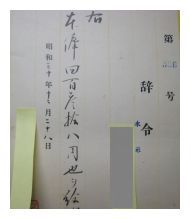 第 号
辞令
右
本俸四百参拾八円也ヲ給
昭和二十年十二月二十八日